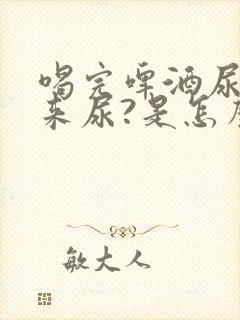 喝完啤酒尿
来尿?是怎
敏大人